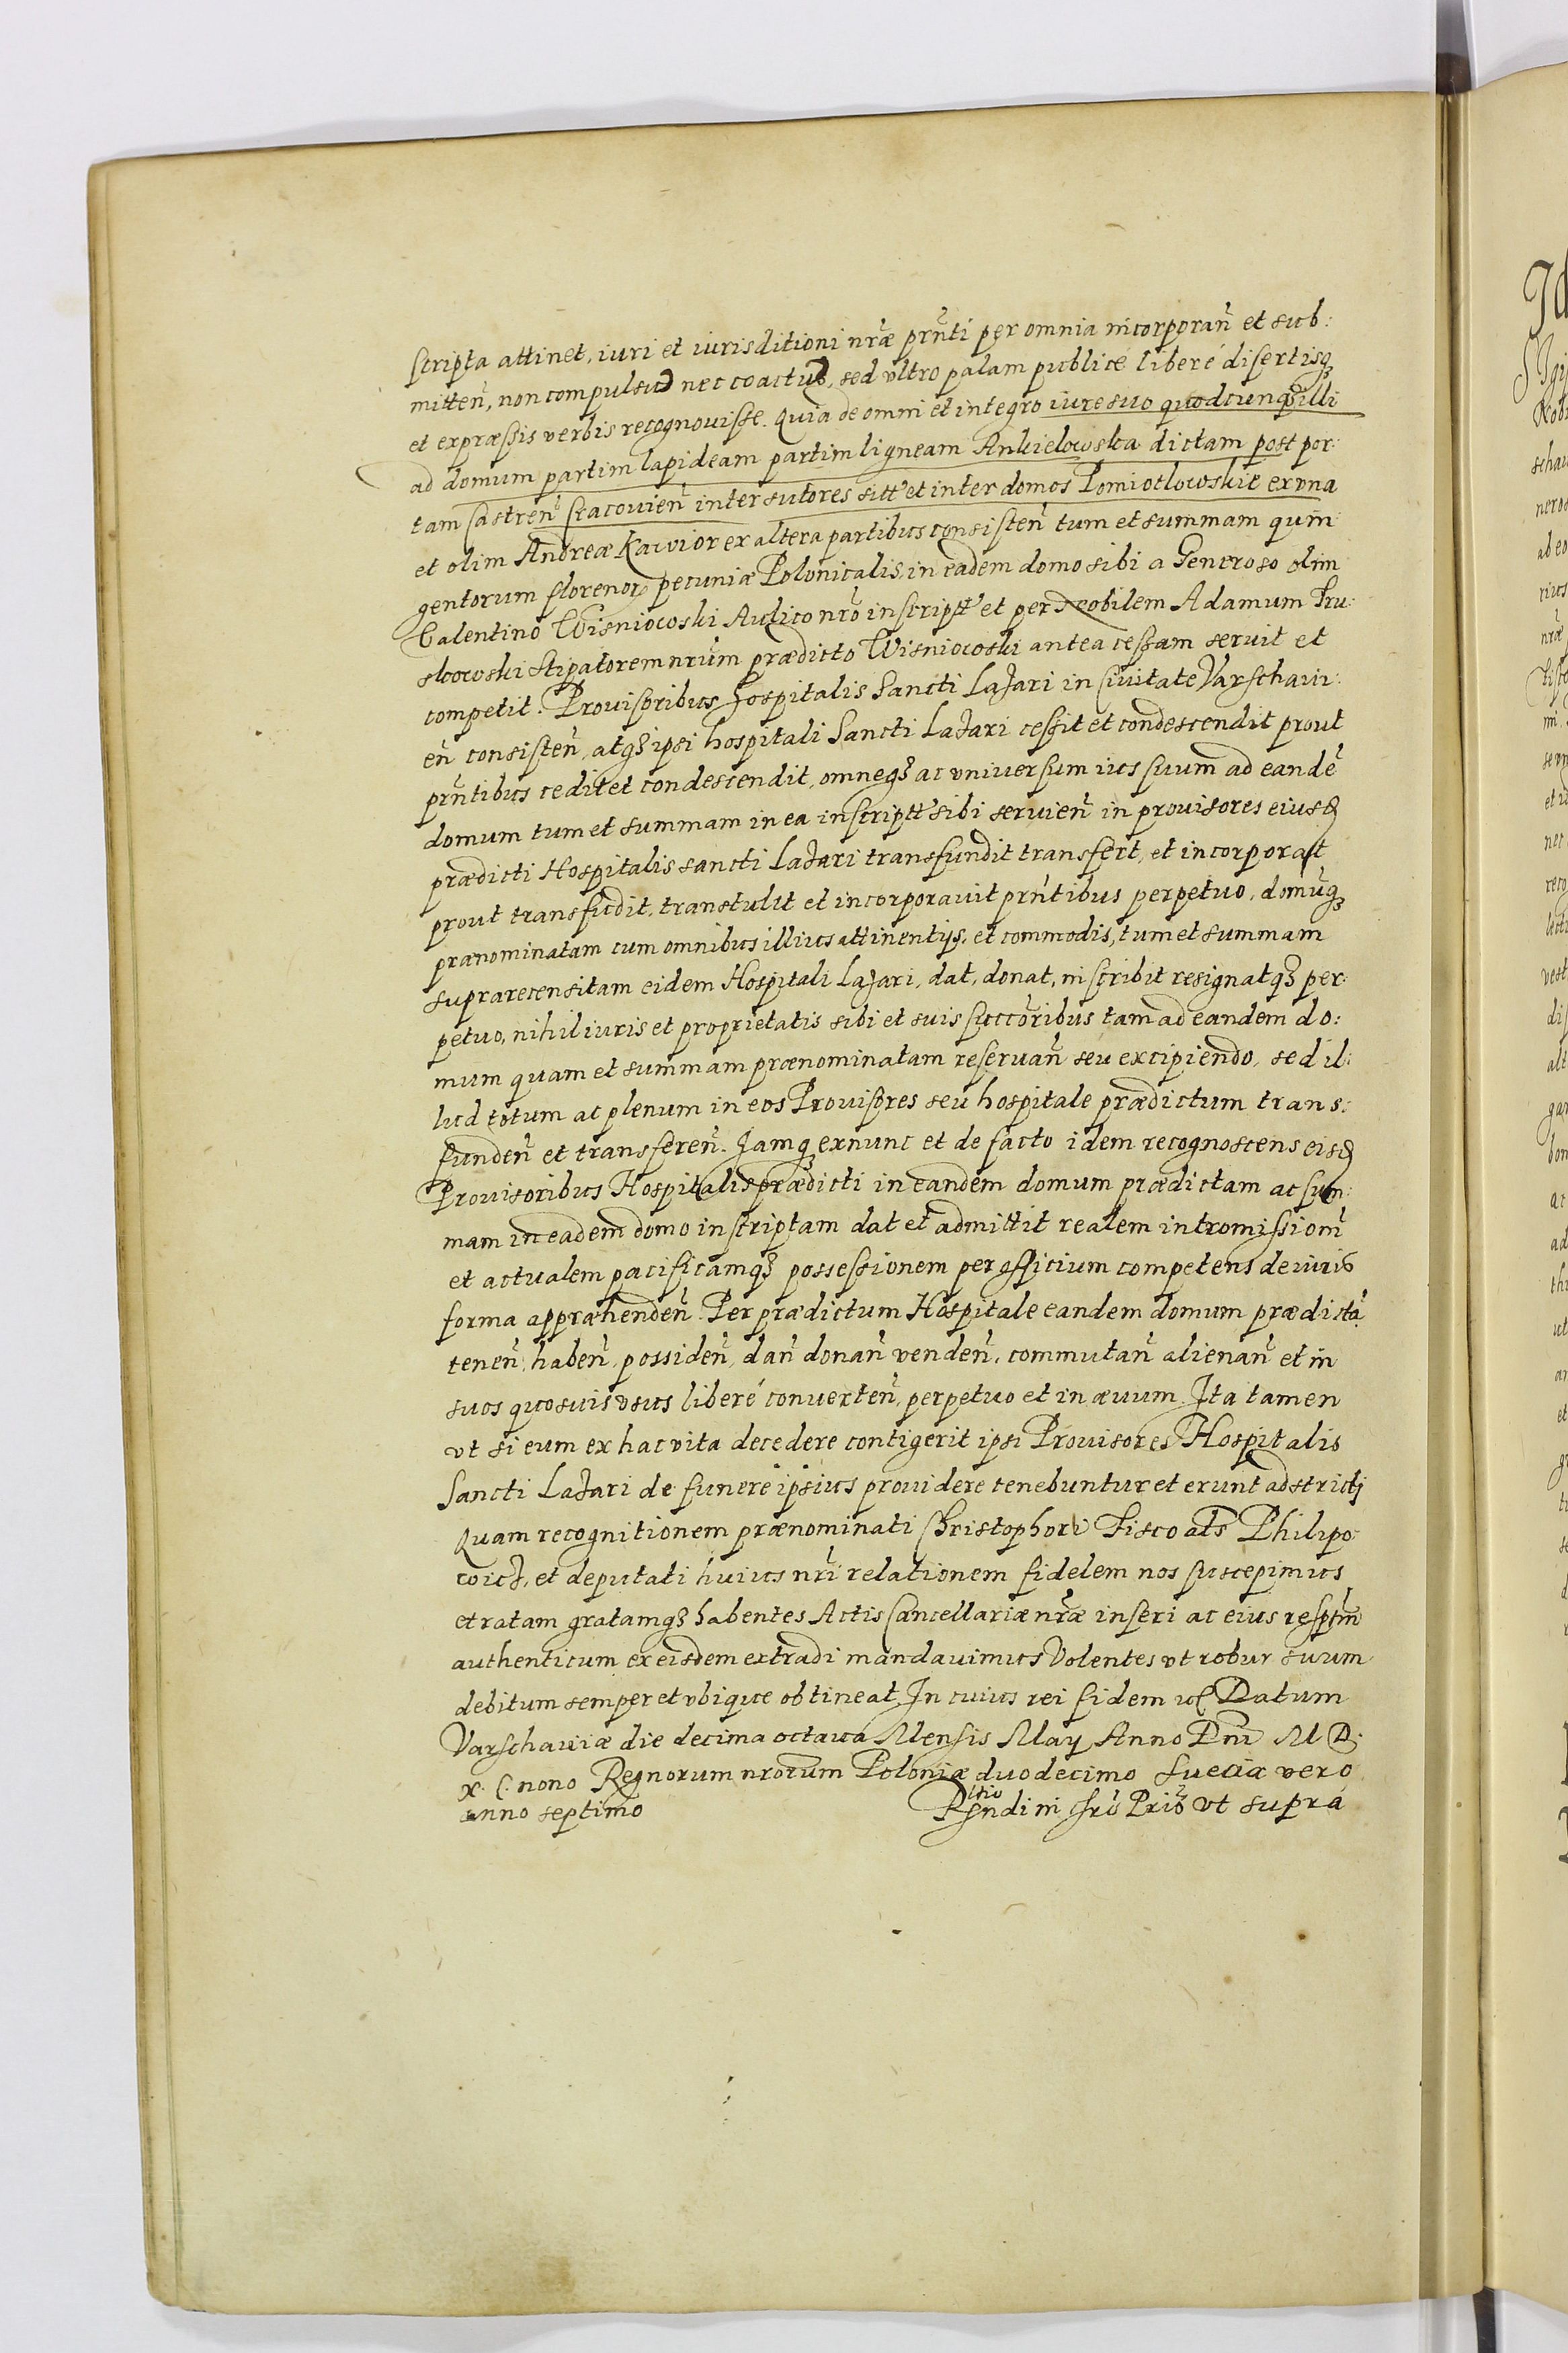 scripta attinet, iuri et iurisditioni nr̃æ prñti per omnia incorporañ et sub:
mitteñ, non compulsus nec coactus, sed vltro palam publicè liberè disertisq₃
et expræssis verbis recognovisse. Quia de omni et integro iure suo quodcunq₃ illi
ad domum partim lapideam partim ligneam Ankielowska dictam post por:
tam Castreñ Cracovieñ inter sutores sitt̃ et inter domos Pomiotlowskie ex vna
et olim Andreæ Kawior ex altera partibus consisteñ tum et summam quin
gentorum florenor pecuniæ Polonicalis, in eadem domo sibi a Generoso olim
Valentino Wisniowski Aulico nrõ inscriptt̃ et per Nobilem Adamum Tru:
skowski Stipatorem nrũm prædicto Wisniowski antea cessam servit et
competit. Provisoribus Hospitalis Sancti Lazari in Ciuitate Varschaui:
eñ consisteñ, atq₃ ipsi hospitali Sancti Lazari cessit et condescendit prout
prñtibus cedit et condescendit, omneq₃ ac vniversum ius suum ad eandẽ
domum tum et summam in ea inscriptt̃ sibi servieñ in provisores eiusd
prædicti Hospitalis sancti Lazari transfundit transfert, et incorporat
prout transfudit, transtulit et incorporavit prñtibus perpetuo, domũq₃
prænominatam cum omnibus illius attinentijs, et commodis, tum et summam
suprarecensitam eidem Hospitali Lazari, dat, donat, inscribit resignatq₃ per:
petuo, nihil iuris et proprietatis sibi et suis succõribus tam ad eandem do:
mum quam et summam prænominatam reservañ seu excipiendo, sed il:
lud totum ac plenum in eos Provisores seu hospitale prædictum trans:
fundeñ et transfereñ. Jamq₃ exnunc et de facto idem recognoscens eisd
Provisoribus Hospitalis prædicti in eandem domum prædictam ac sum:
mam in eadem domo inscriptam dat et admittit realem intromissionẽ
et actualem pacificamq₃ possessionem per officium competens de iuris
forma appræhendeñ. Per prædictum Hospitale eandem domum prædictã
teneñ, habeñ, possideñ, dañ donañ vendeñ, commutañ alienañ et in
suos quosuis vsus liberè converteñ, perpetuo et in ævum. Ita tamen
vt si eum ex hac vita decedere contigerit ipsi Provisores Hospitalis
Sancti Lazari de funere ipsius providere tenebuntur et erunt adstricti
Quam recognitionem prænominati Christophori Fisco al̃s Philipo:
wicz, et deputati huius nrĩ relationem fidelem nos suscepimus
et ratam gratamq₃ habentes Actis Cancellariæ nr̃æ inseri ac eius rescptm̃
authenticum ex eisdem extradi mandavimus Volentes vt robur suum
debitum semper et vbique obtineat. In cuius rei fidem Datum
Varschaviæ die decima octaua Mensis Maij Anno Dnĩ M D.
X. C. nono Regnorum nrorum Poloniæ duodecimo Sueciæ vero
anno septimo vt supra